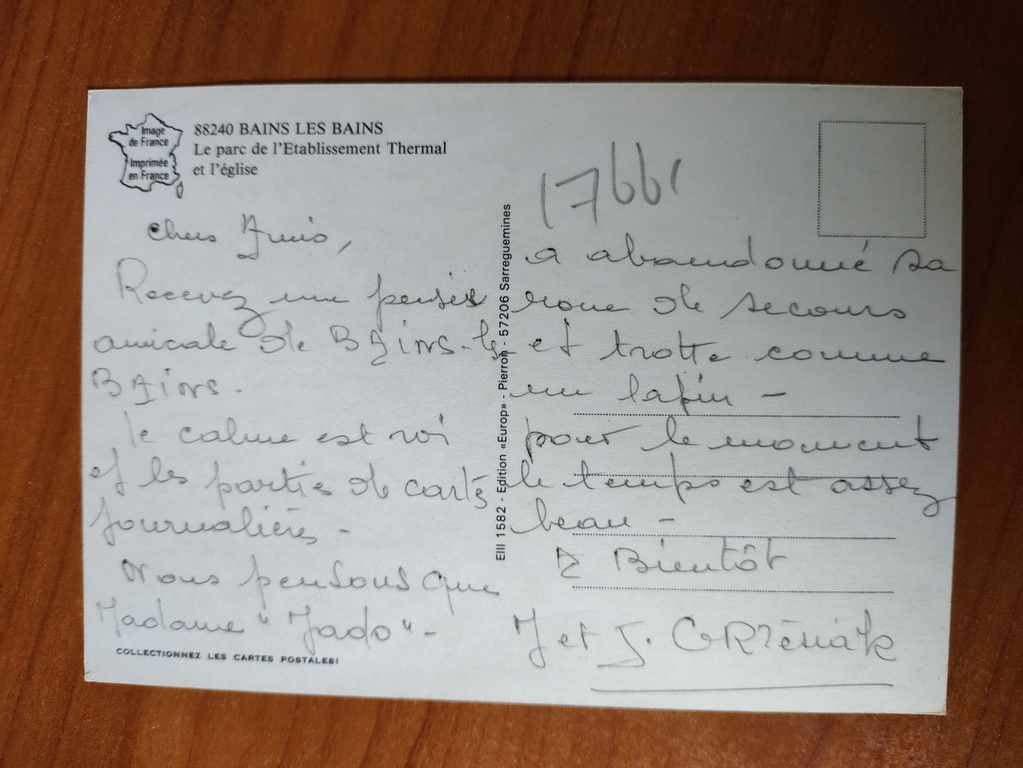 Image
de France
Imprimée
en France
88240 BAINS LES BAINS
Le parc de l'Etablissement Thermal
et l'église
Chers Amis,
Recevez une pensée
amicale de BAiNS-les
BAiNS.
le calme est roi
et les parties de cartes
journalières -
Nous pensons que
Madame "Mado" -
COLLECTIONNEZ LES CARTES POSTALES!
EIII 1582 - Edition «Europ» - Pierron - 57206 Sarreguemines
17661
a abandonné sa
roue de secours
et trotte comme
un lapin -
pour le moment
le temps est assez
beau -
A Bientôt
M et J.